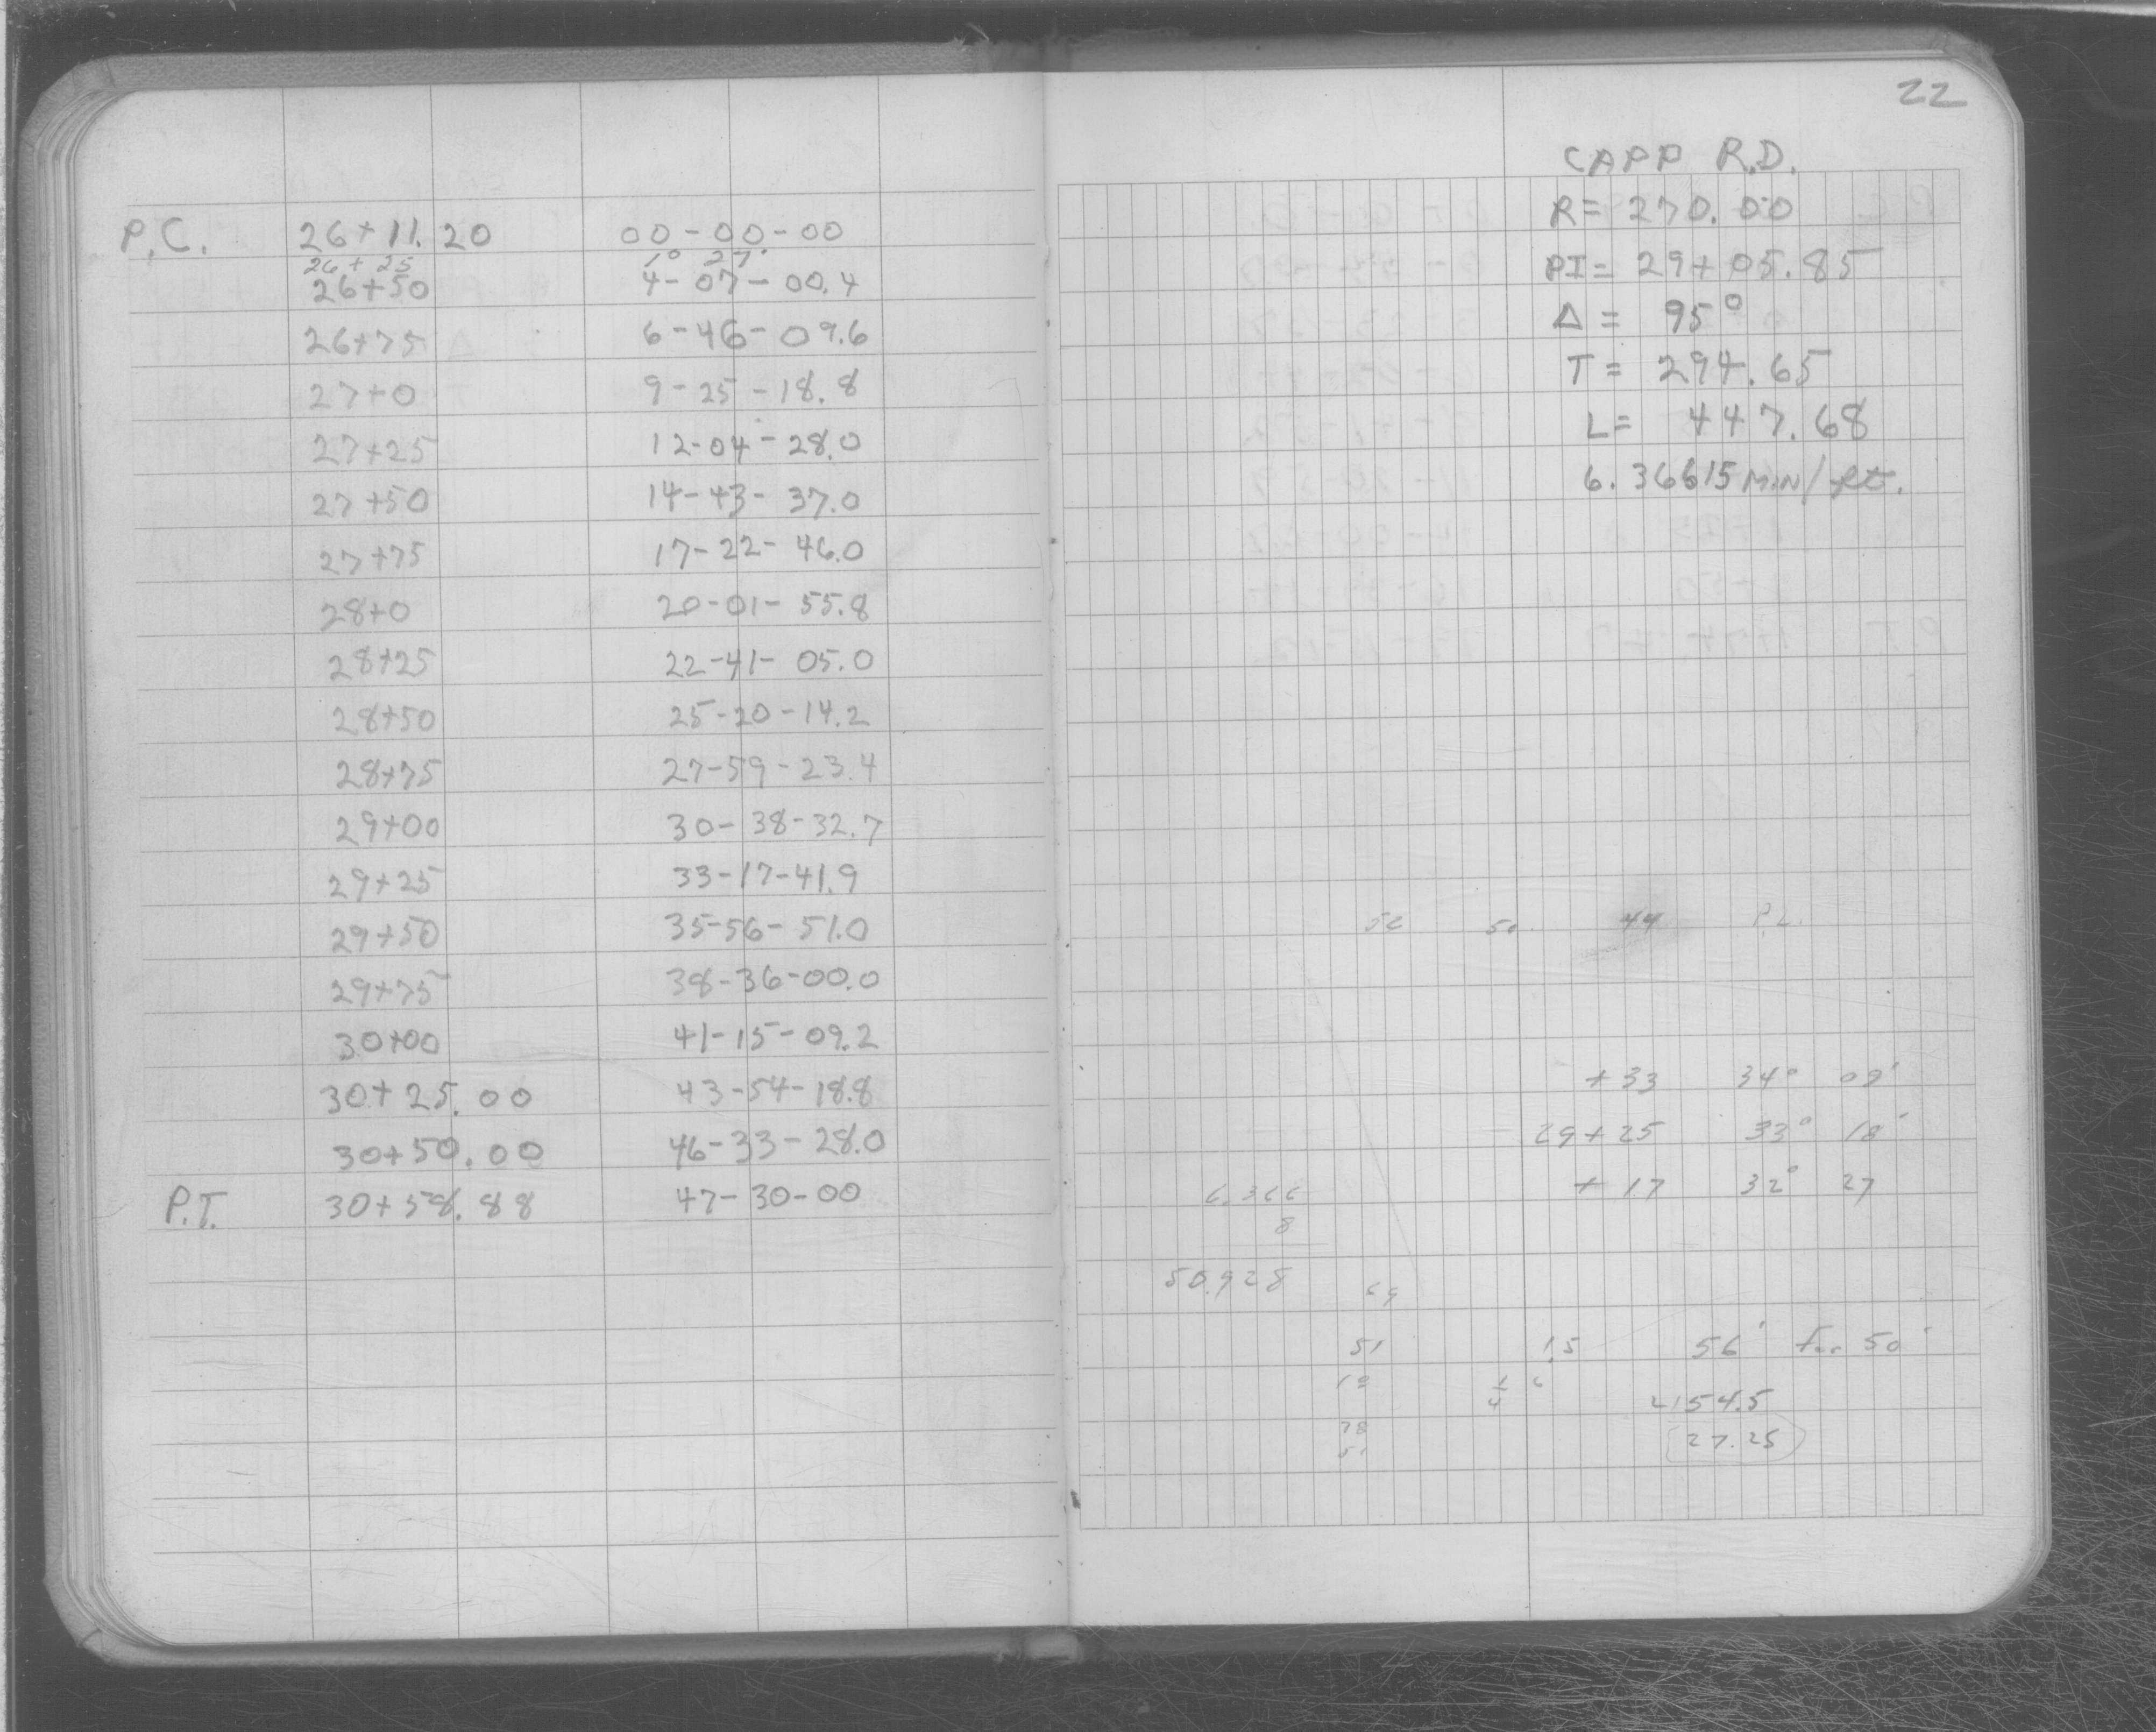 P.C. 26+11.20 00-00-00
26+25 1° 27'
26+50 4-07-00.4
26+75 6-46-09.6
27+0 9-25-18.8
27+25 12-04-28.0
27+50 14-43-37.0
27+75 17-22-46.0
28+0 20-01-55.8
28+25 22-41-05.0
28+50 25-20-14.2
28+75 27-59-23.4
29+00 30-38-32.7
29+25 33-17-41.9
29+50 35-56-51.0
29+75 38-36-00.0
30+00 41-15-09.2
30+25.00 43-54-18.8
30+50.00 46-33-28.0
P.T. 30+58.88 47-30-00
22
CAPP R.D.
R= 270.00
PI= 29+05.85
Δ= 95°
T= 294.65
L= 447.68
6.36615 MIN/ft.
44 P.L.
+33 34° 09'
29+25 33° 18'
+17 32° 27
6.366
8
50.928
51 1.5 56' for 50'
154.5
27.25